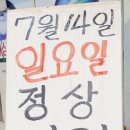 7월 14일
일요일
정상